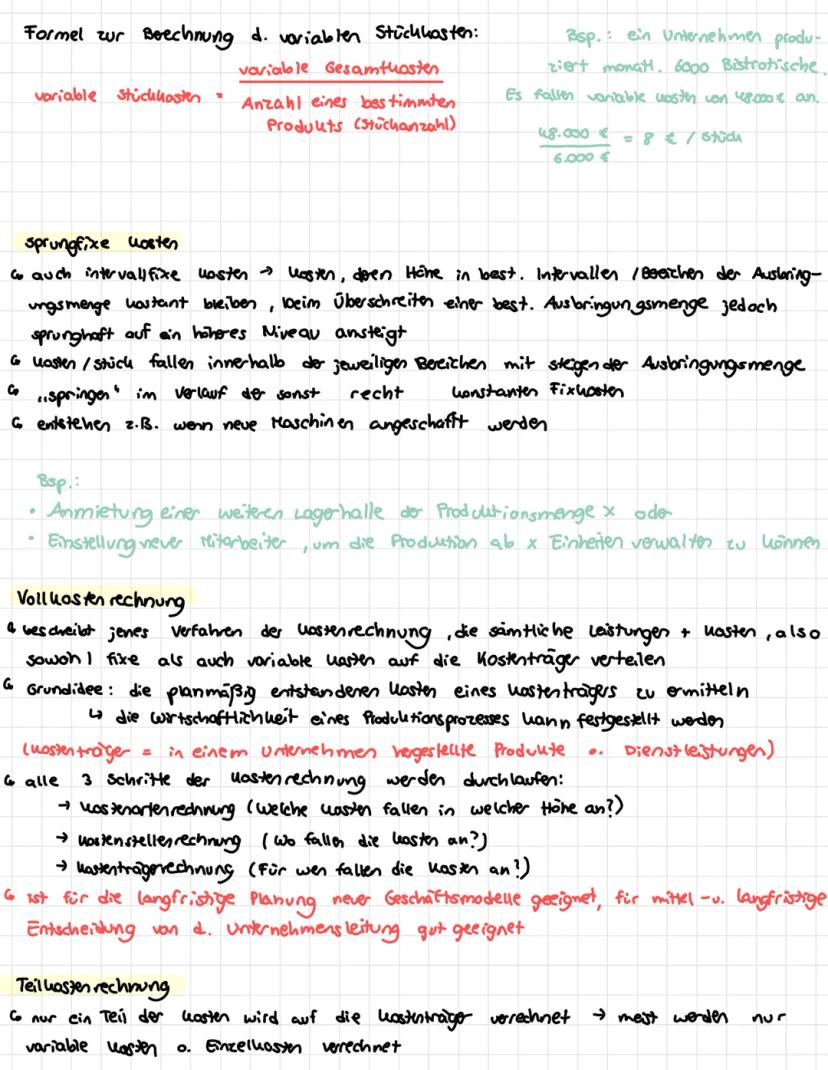 Formel zur Berechnung d. variablen Stückkosten:
variable Stückkosten = variable Gesamtkosten
Anzahl eines bestimmten
Produkts (Stückanzahl)
Bsp.: ein Unternehmen produ-
ziert monatl. 6000 Bistrotische.
Es fallen variable Kosten von 48.000 € an.
48.000 € = 8 € / Stück
6.000 €
sprungfixe Kosten
↳ auch intervallfixe Kosten → Kosten, deren Höhe in best. Intervallen / Bereichen der Ausbring-
ungsmenge kostant bleiben, beim Überschreiten einer best. Ausbringungsmenge jedoch
sprunghaft auf ein höheres Niveau ansteigt
↳ Kosten / Stück fallen innerhalb der jeweiligen Bereichen mit steigender Ausbringungsmenge
↳ „springen“ im Verlauf der sonst recht konstanten Fixkosten
↳ entstehen z.B. wenn neue Maschinen angeschafft werden
Bsp.:
• Anmietung einer weiteren Lagerhalle der Produktionsmenge x oder
• Einstellung neuer Mitarbeiter, um die Produktion ab x Einheiten verwalten zu können
Vollkostenrechnung
↳ bescheibt jenes Verfahren der Kostenrechnung, die sämtliche Leistungen + Kosten, also
sowohl fixe als auch variable Kosten auf die Kostenträger verteilen
↳ Grundidee: die planmäßig entstandenen Kosten eines Kostenträgers zu ermitteln
↳ die Wirtschaftlichkeit eines Produktionsprozesses kann festgestellt werden
(Kostenträger = in einem Unternehmen hergestellte Produkte o. Dienstleistungen)
↳ alle 3 Schritte der Kostenrechnung werden durchlaufen:
→ Kostenartenrechnung (Welche Kosten fallen in welcher Höhe an?)
→ Kostenstellenrechnung (Wo fallen die Kosten an?)
→ Kostenträgerrechnung (Für wen fallen die Kosten an?)
↳ ist für die langfristige Planung neuer Geschäftsmodelle geeignet, für mittel- u. langfristige
Entscheidung von d. Unternehmensleitung gut geeignet
Teilkostenrechnung
↳ nur ein Teil der Kosten wird auf die Kostenträger verrechnet → meist werden nur
variable Kosten o. Einzelkosten verrechnet